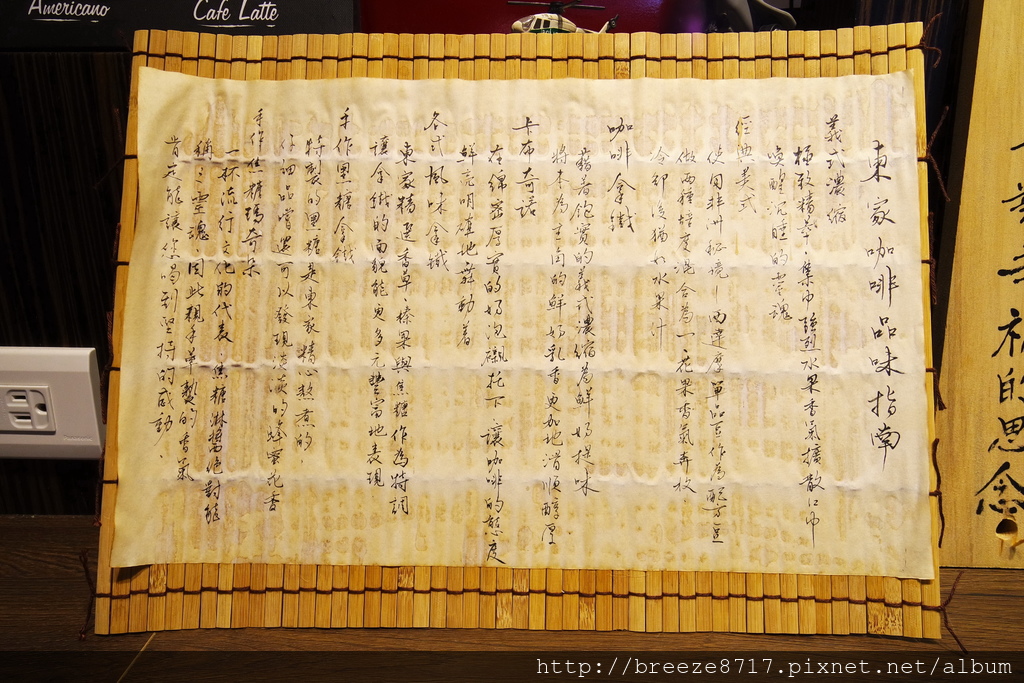 Americano
Cafe Latte
東家咖啡品味指南
義式濃縮
極致精萃，集中強烈水果香氣擴散口中
喚醒沉睡的靈魂
經典美式
使用非洲秘境－西達摩單品豆作為配方豆
做兩種焙度混合為一，花果香氣奔放
冷卻後猶如水果汁
咖啡拿鐵
藉著飽實的義式濃縮為鮮奶提味
將本為主角的鮮奶乳香更加地滑順醇厚
卡布奇諾
在綿密厚實的奶泡襯托下，讓咖啡的態度
鮮亮明確地舞動著
各式風味拿鐵
東家精選香草、榛果與焦糖作為特調
讓拿鐵的面貌能更多元豐富地表現
手作黑糖拿鐵
特製的黑糖是東家精心熬煮的，
仔細品嚐還可以發現淡淡的蜂蜜花香
手作焦糖瑪奇朵
一杯流行文化的代表，焦糖淋醬絕對能
稱之靈魂，因此親手單製的香氣
肯定能讓您喝到堅持的感動．
的思念
http://breeze8717.pixnet.net/album